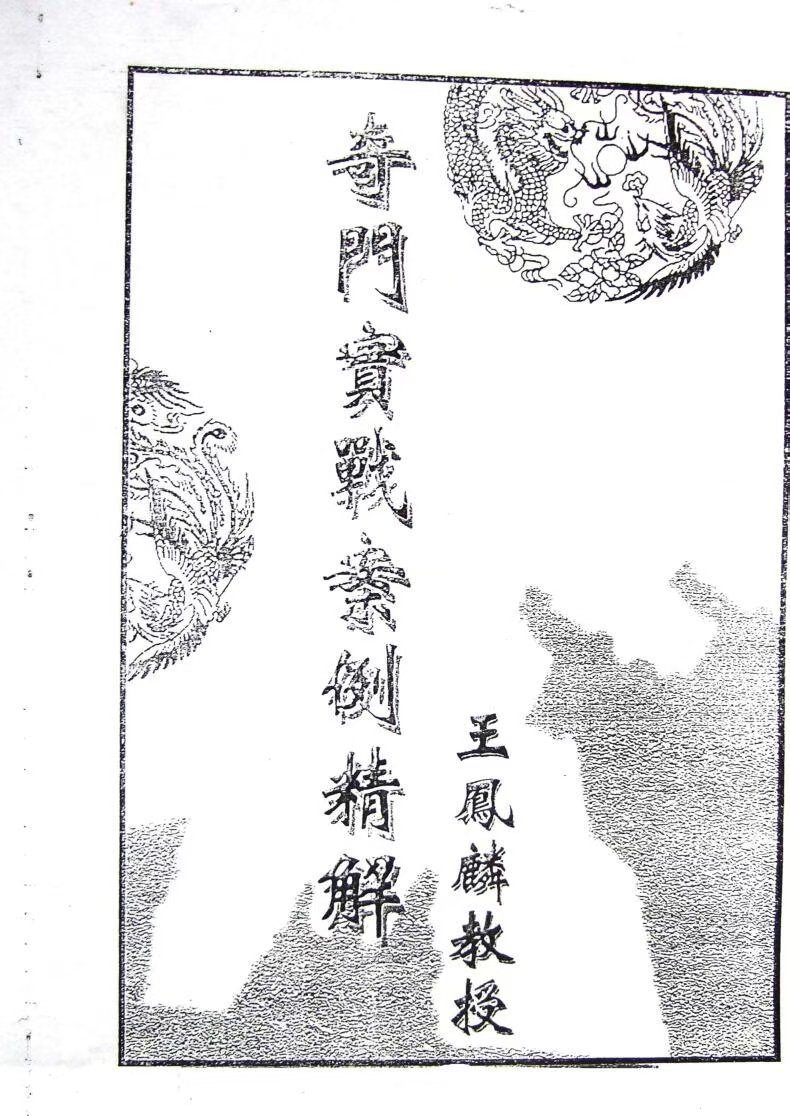 奇門實戰案例精解
王鳳麟教授